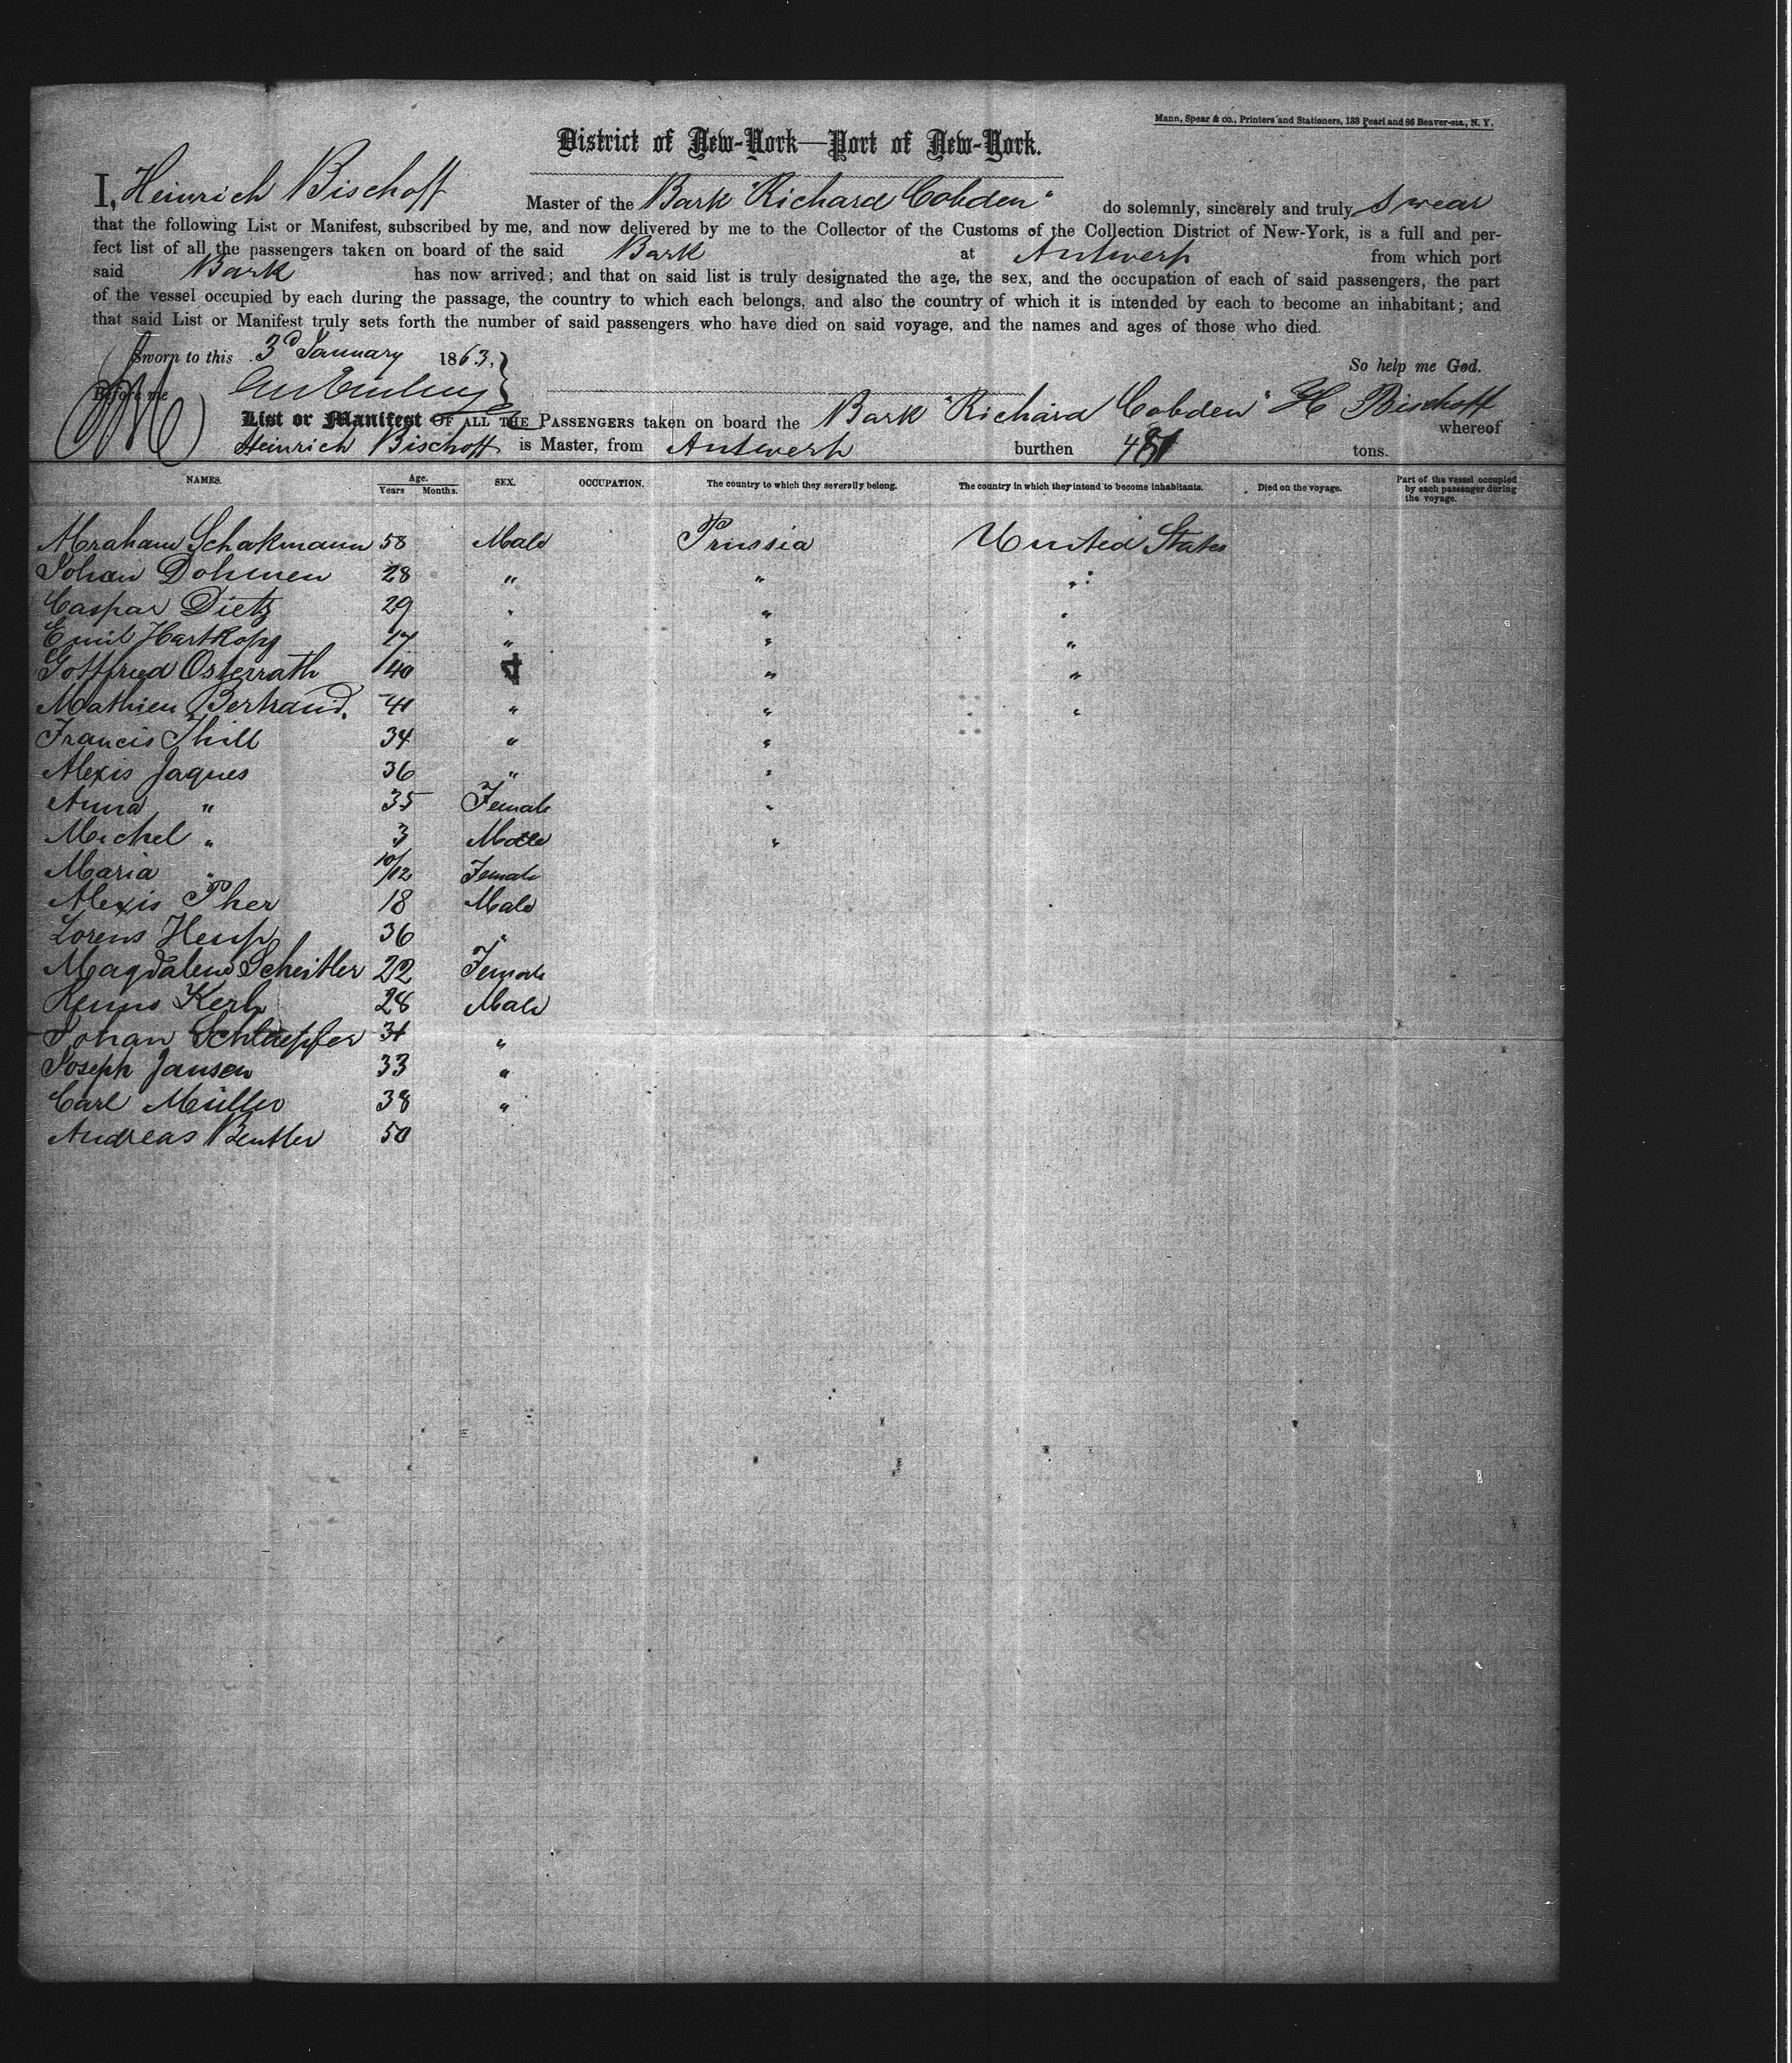 Mann, Spear & Co., Printers and Stationers, 138 Pearl and 86 Beaver-sts., N. Y.
District of New-York—Port of New-York.
I, Heinrich Bischoff Master of the Bark "Richard Cobden" do solemnly, sincerely and truly swear
that the following List or Manifest, subscribed by me, and now delivered by me to the Collector of the Customs of the Collection District of New-York, is a full and per-
fect list of all the passengers taken on board of the said Bark at Antwerp from which port
said Bark has now arrived; and that on said list is truly designated the age, the sex, and the occupation of each of said passengers, the part
of the vessel occupied by each during the passage, the country to which each belongs, and also the country of which it is intended by each to become an inhabitant; and
that said List or Manifest truly sets forth the number of said passengers who have died on said voyage, and the names and ages of those who died.
Sworn to this 3d January 1863. So help me God.
Before me
H Bischoff
List or Manifest OF ALL THE PASSENGERS taken on board the Bark "Richard Cobden" whereof
Heinrich Bischoff is Master, from Antwerp burthen tons.
NAMES. Age. Years Months. SEX. OCCUPATION. The country to which they severally belong. The country in which they intend to become inhabitants. Died on the voyage. Part of the vessel occupied by each passenger during the voyage.
Abraham Schakmann 58 Male Prussia United States
Johan Dohmen 28 " " "
Caspar Dietz 29 " " "
Emil Hartkopf 17 " " "
Gottfried Osterrath 40 " "
Mathieu Bertrand. 41 " " "
Francis Thill 34 " "
Alexis Jaques 36 " "
Anna " 35 Female "
Michel " 3 Male "
Maria " 10/12 Female
Alexis Pher 18 Male
Lorens Hemp 36 "
Magdalene Scheitler 22 Female
Kerh 28 Male
Johan Schlaepfer 31 "
Joseph Jansen 33 "
Carl Müller 38 "
Andreas Beutler 50